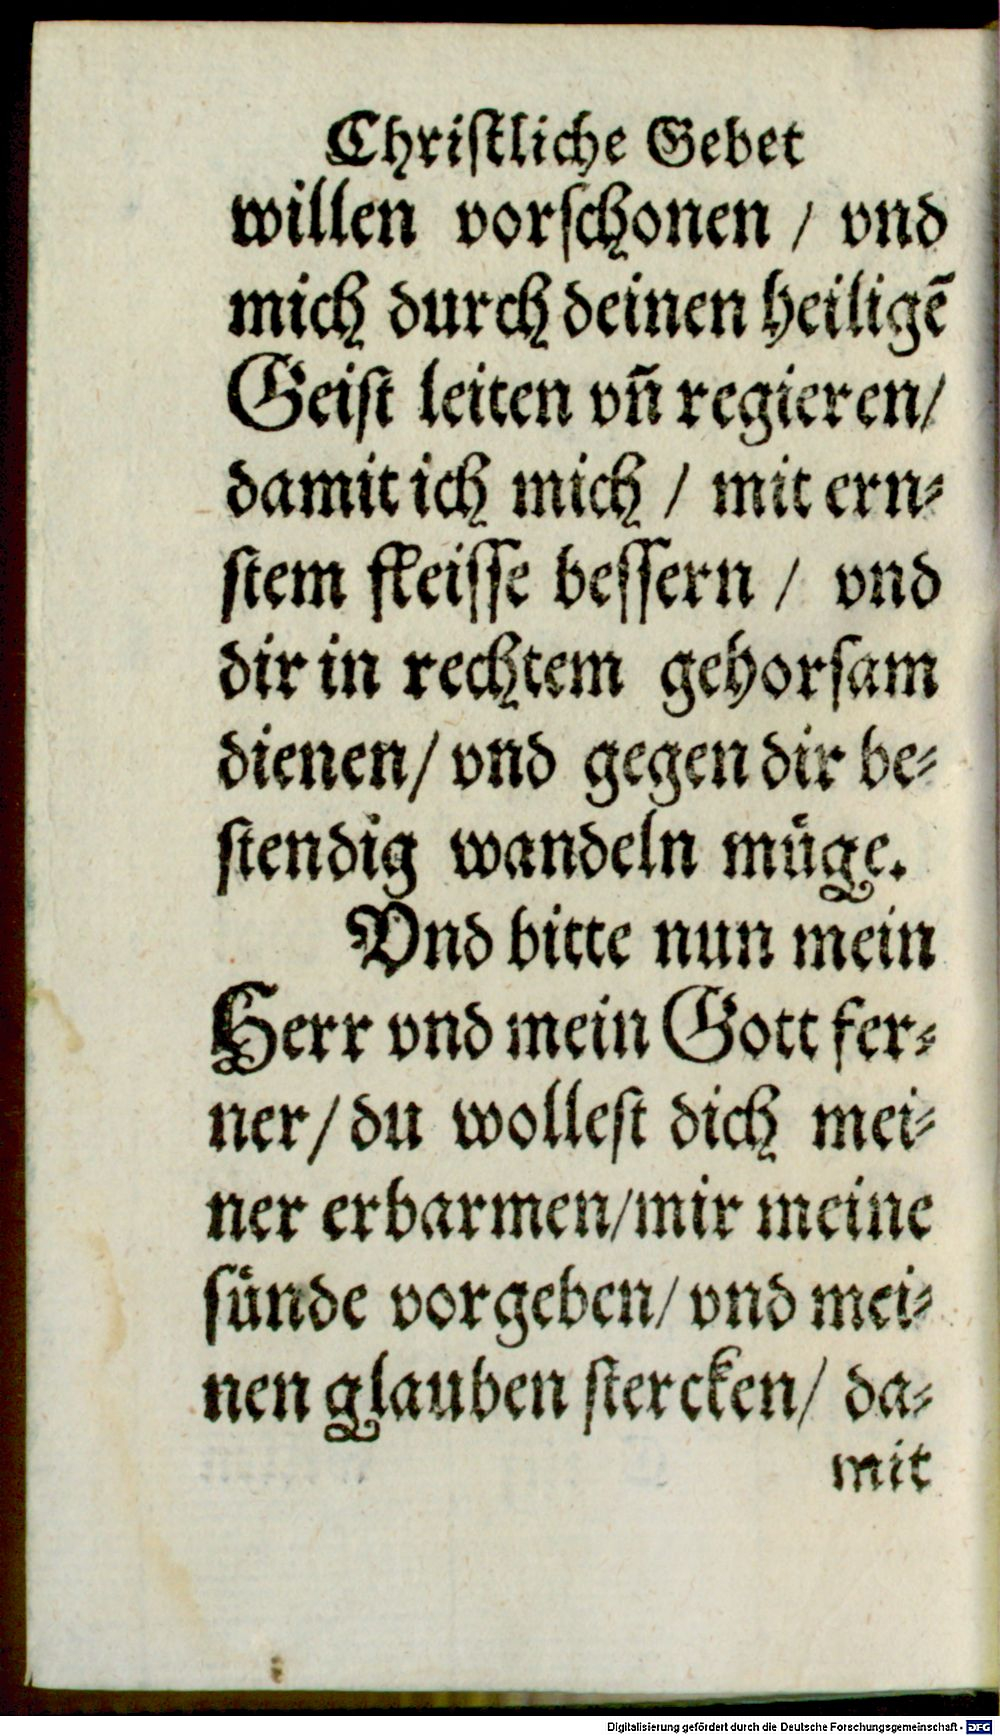 Chriſtliche Gebet
willen vorſchonen / vnd
mich durch deinen heiligē
Geiſt leiten vn̄ regieren/
damit ich mich / mit ern⸗
ſtem fleiſſe beſſern / vnd
dir in rechtem gehorſam
dienen/ vnd gegen dir be⸗
ſtendig wandeln muͤge.
Vnd bitte nun mein
Herr vnd mein Gott fer⸗
ner/ du wolleſt dich mei⸗
ner erbarmen/mir meine
ſuͤnde vorgeben/ vnd mei⸗
nen glauben ſtercken/ da⸗
mit
Digitalisierung gefördert durch die Deutsche Forschungsgemeinschaft - DFG